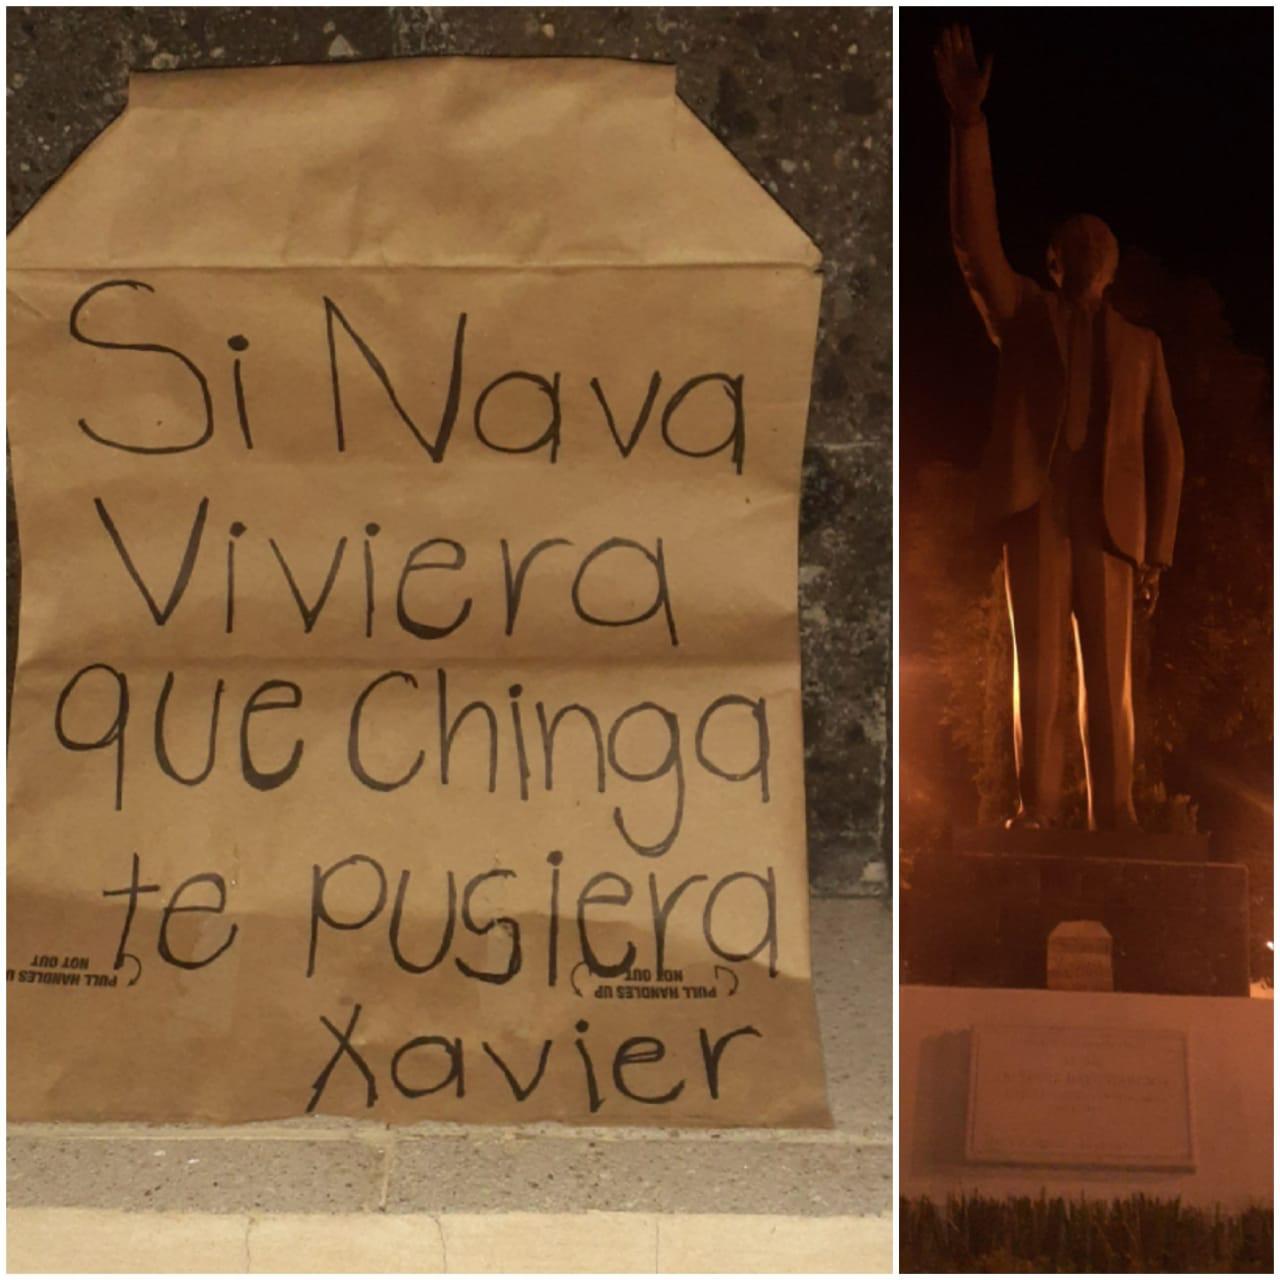 Si Nava
Viviera
que Chinga
te pusiera
Xavier
PULL HANDLES UP
NOT OUT
PULL HANDLES UP
NOT OUT